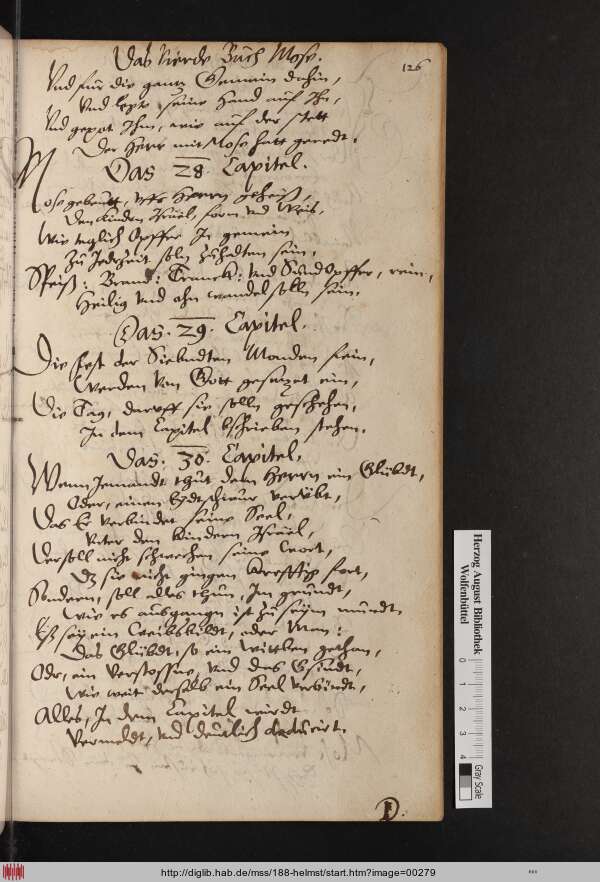 Das Vierde Buch Mose.
126
Und für die gantz Gemain dahin,
Und legte seine Hand auf Ihn,
Und gepot Ihm, wie auf der stett
Der Herr mit Mose hatt geredt.
Das 28. Capitel.
Mose gebeutt, uffs Herrn geheiß,
Den Kindern Israel, form und Weis,
Wie teglich Opffer In gemein
Zu Jederzeit solln zuhalten sein,
Speiß: Brand: Tranck: und Sündopffer, rein,
Heilig und ohn wandel solln sein.
Das. 29. Capitel.
Die Fest der Siebendten Monden fein,
Werden von Gott gesetzet ein,
Die Tag, daruff sie solln geschehen,
In dem Capitel bschrieben stehen.
Das. 30. Capitel.
Wenn Jemandt thut dem Herrn ein Glübdt,
Oder, einen Eydtschwur verübt,
Das Er verbindet seine Seel,
Unter den Kindern Israel,
Der soll nicht schwechen seine Wort,
Dz sie nicht gingen krefftig fort,
Sondern, soll alles thun, Im grundt,
Wie es ausgangn ist zu seim mundt
Eß sey ein Weibsbildt, oder Man:
Das Glübdt, so ein Wittben gethan,
Odr, ein Verstossne, und das Gsindt,
Wie weit derselb ein Seel verbindt,
Alles, In dem Capitel wirdt
Vermeldt, und deutlich declarirt.
Herzog August Bibliothek
Wolfenbüttel
0 1 2 3 4
Gray Scale
http://diglib.hab.de/mss/188-helmst/start.htm?image=00279